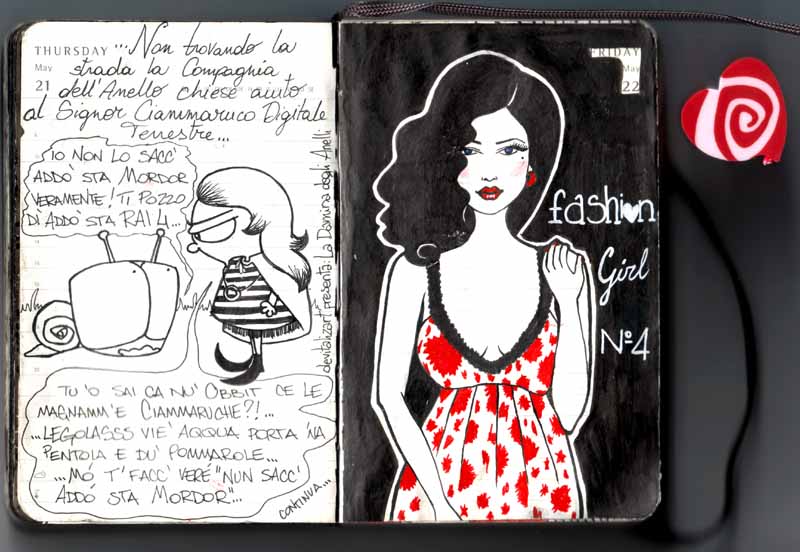 THURSDAY
May
21
...Non trovando la
strada la Compagnia
dell'Anello chiese aiuto
al Signor Ciammaruco Digitale
Terrestre...
IO NON LO SACC'
ADDÒ STA MORDOR
VERAMENTE! TI POZZO
DÌ ADDÒ STA RAI 4...
devitalizart presenta: La Damina degli Anelli
TU 'O SAI CA NU' OBBIT CE LE
MAGNAMM'E CIAMMARUCHE?!...
...LEGOLASSS VIE' ACQUA PORTA 'NA
PENTOLA E DU' POMMAROLE...
...MÓ T'FACC' VERÉ "NUN SACC'
ADDÓ STA MORDOR"...
CONTINUA...
FRIDAY
May
22
fashion
Girl
Nº4